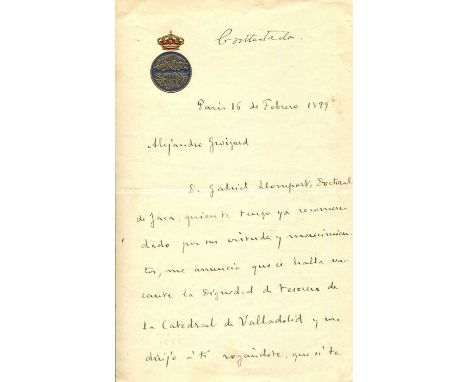 Contestada.
París 16 de Febrero 1899
Alejandro Groizard
D. Gabriel Llompart, Doctoral
de Jaca, quien te tengo ya recomen-
dado por sus virtudes y merecimien-
tos, me anuncia que se halla va-
cante la Dignidad de Tesorero de
la Catedral de Valladolid y me
dirijo á ti rogándote, que si te